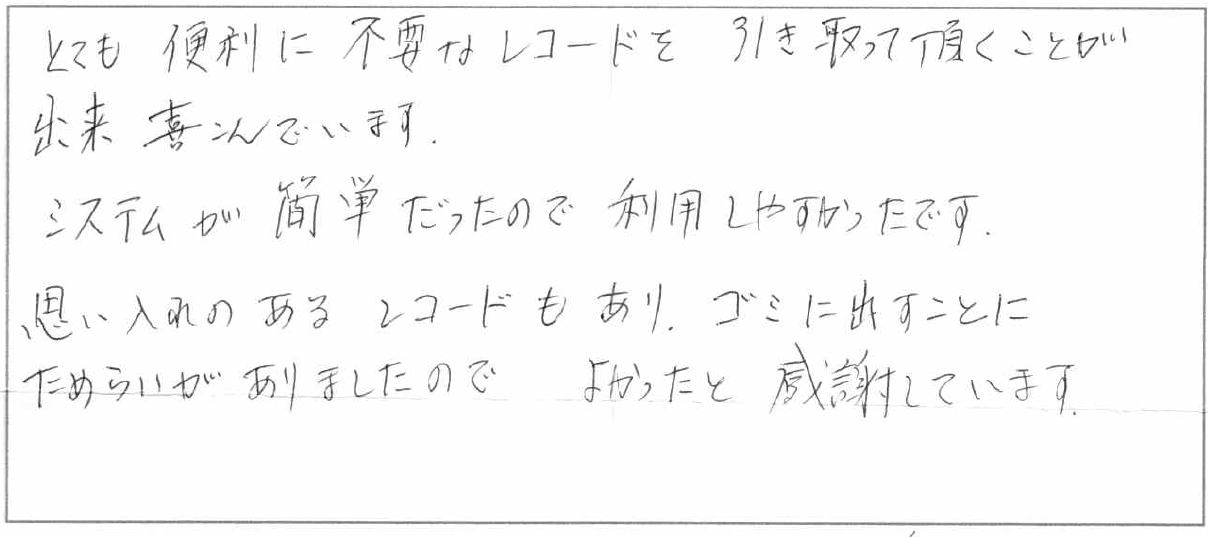 とても便利に不要なレコードを引き取って頂くことが
出来喜こんでいます.
システムが簡単だったので利用しやすかったです.
思い入れのあるレコードもあり. ゴミに出すことに
ためらいがありましたのでよかったと感謝しています.